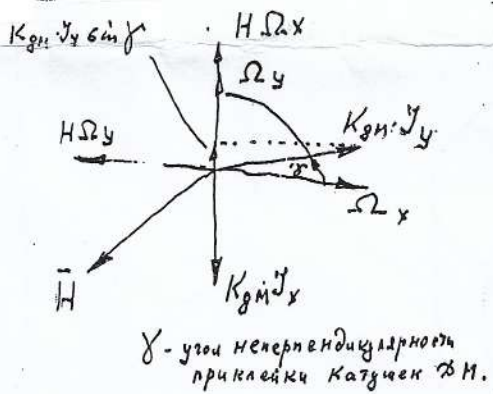 Kдм·Jy sin γ
HΩx
Ωy
HΩy
Kдм·Jy
γ
Ωx
H̄
Kдм·Jx
γ - угол неперпендикулярности
приклейки катушек ДМ.